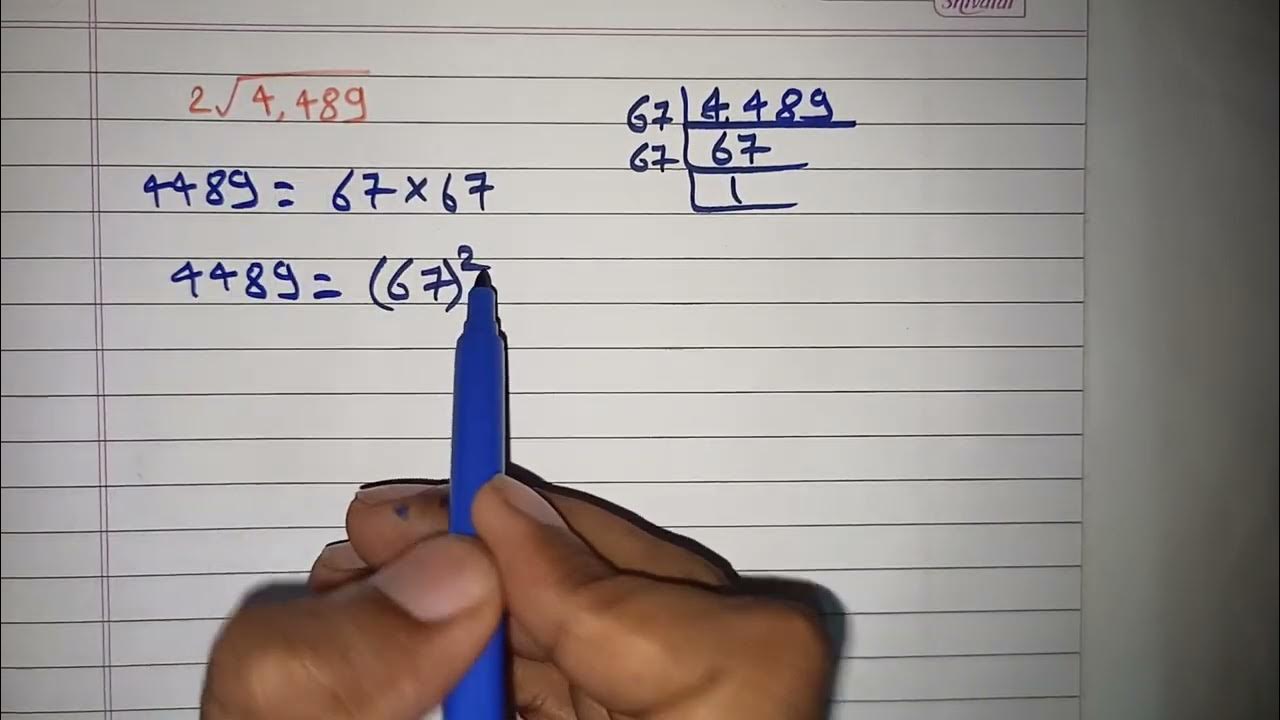 Shivalal
2√4,489
4489 = 67×67
4489 = (67)²
67 | 4,489
67 | 67
1